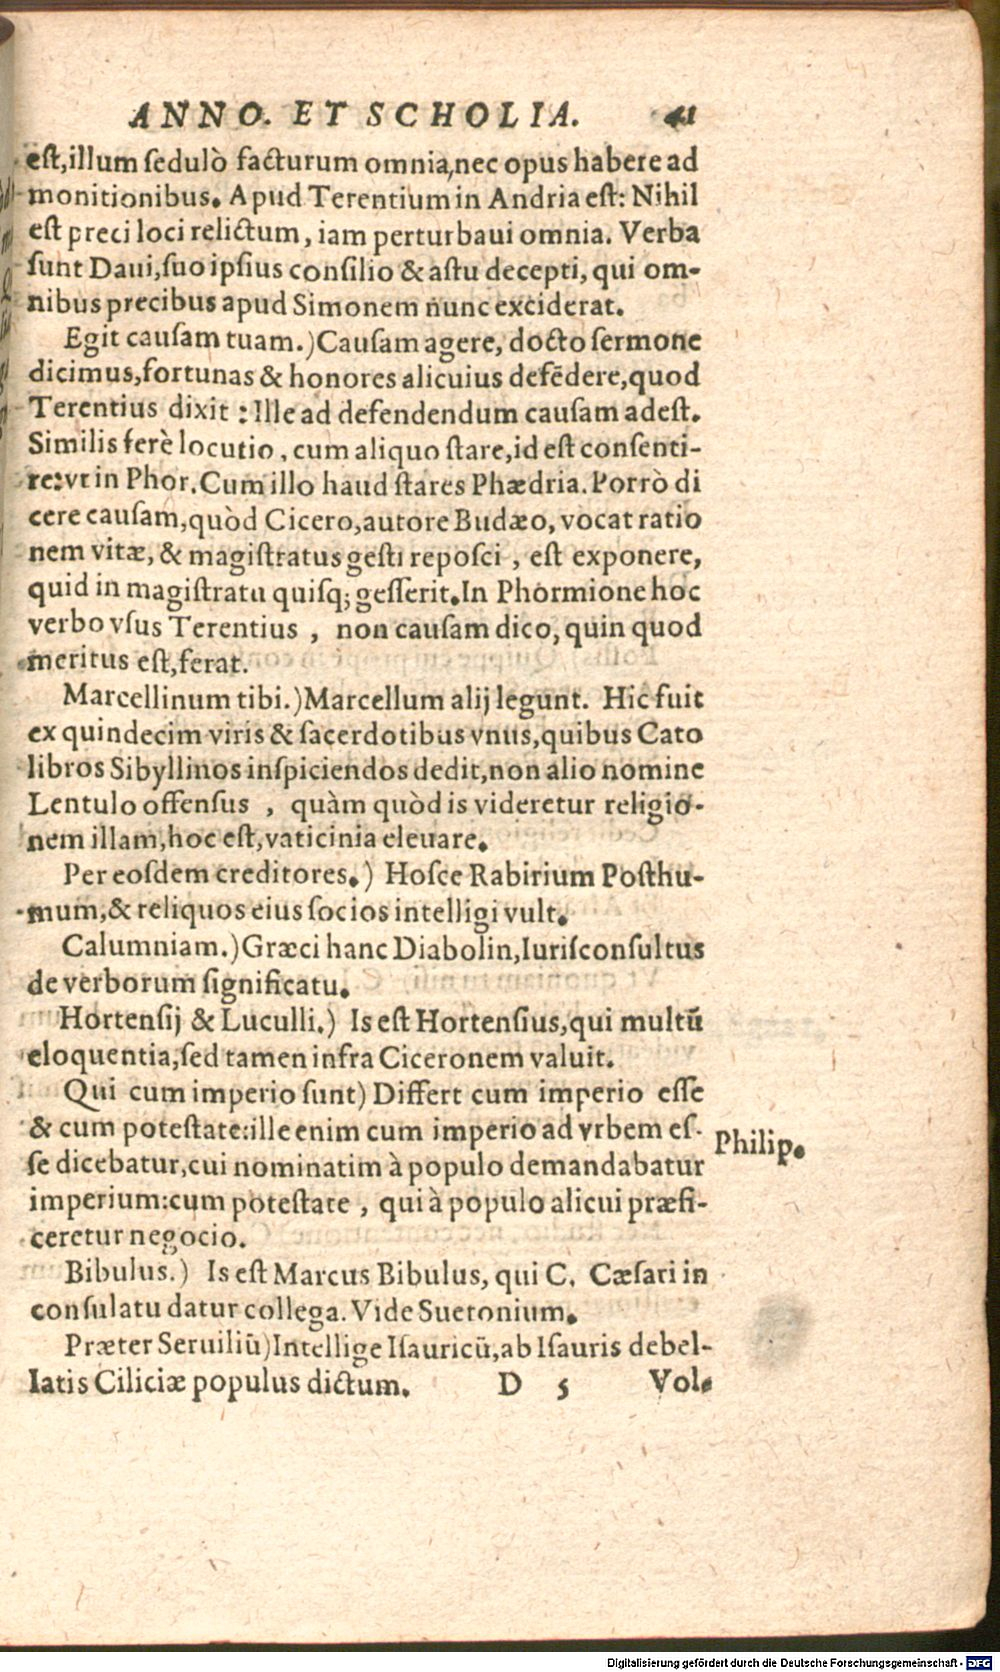 ANNO. ET SCHOLIA. 41
est, illum sedulò facturum omnia, nec opus habere ad
monitionibus. Apud Terentium in Andria est: Nihil
est preci loci relictum, iam perturbaui omnia. Verba
sunt Daui, suo ipsius consilio & astu decepti, qui om-
nibus precibus apud Simonem nunc exciderat.
Egit causam tuam.) Causam agere, docto sermone
dicimus, fortunas & honores alicuius defēdere, quod
Terentius dixit: Ille ad defendendum causam adest.
Similis ferè locutio, cum aliquo stare, id est consenti-
re: vt in Phor. Cum illo haud stares Phædria. Porrò di
cere causam, quòd Cicero, autore Budæo, vocat ratio
nem vitæ, & magistratus gesti reposci, est exponere,
quid in magistratu quisq; gesserit. In Phormione hoc
verbo vsus Terentius, non causam dico, quin quod
meritus est, ferat.
Marcellinum tibi.) Marcellum alij legunt. Hic fuit
ex quindecim viris & sacerdotibus vnus, quibus Cato
libros Sibyllinos inspiciendos dedit, non alio nomine
Lentulo offensus, quàm quòd is videretur religio-
nem illam, hoc est, vaticinia eleuare.
Per eosdem creditores.) Hosce Rabirium Posthu-
mum, & reliquos eius socios intelligi vult.
Calumniam.) Græci hanc Diabolin, Iurisconsultus
de verborum significatu.
Hortensij & Luculli.) Is est Hortensius, qui multū
eloquentia, sed tamen infra Ciceronem valuit.
Qui cum imperio sunt) Differt cum imperio esse
& cum potestate: ille enim cum imperio ad vrbem es-
se dicebatur, cui nominatim à populo demandabatur
imperium: cum potestate, qui à populo alicui præfi-
ceretur negocio.
Philip.
Bibulus.) Is est Marcus Bibulus, qui C. Cæsari in
consulatu datur collega. Vide Suetonium.
Præter Seruiliū) Intellige Isauricū, ab Isauris debel-
latis Ciliciæ populus dictum. D 5 Vol-
Digitalisierung gefördert durch die Deutsche Forschungsgemeinschaft - DFG